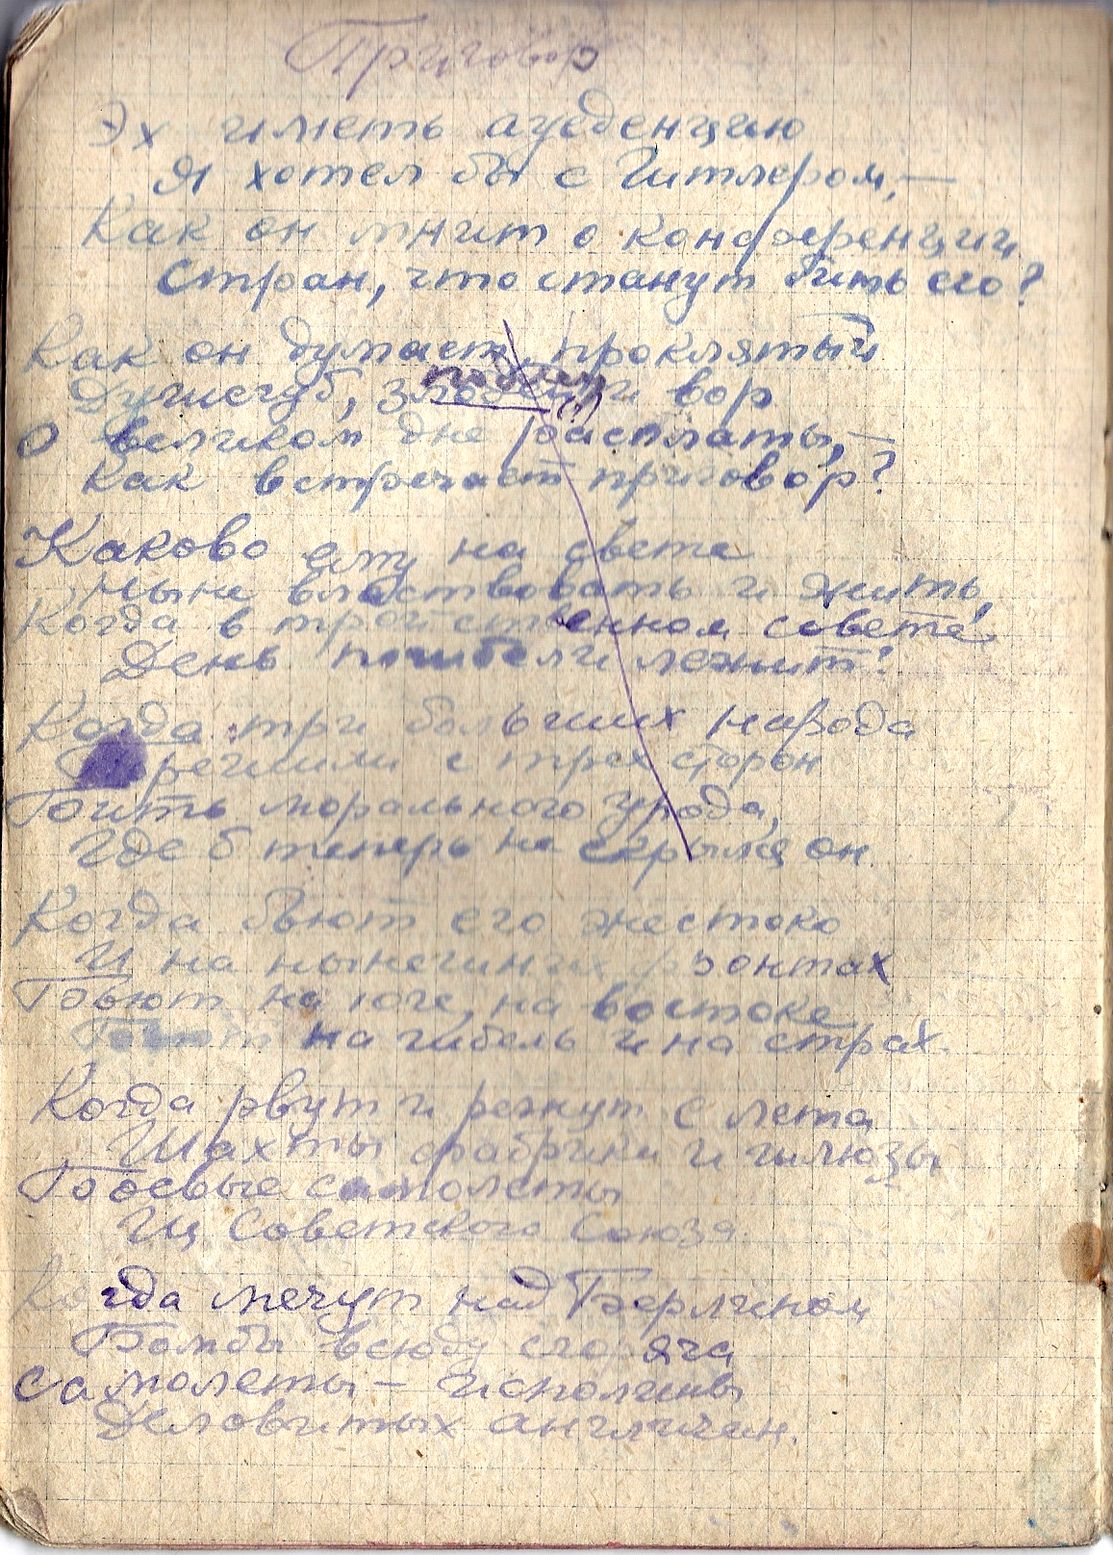 Приговор
Эх иметь ауеденцию
Я хотел бы с Гитлером, —
Как он мнит о конференции
Стран, что станут бить его?
Как он думает, проклятый
Душегуб, злодей и вор
подлец
(!)
О великом дне расплаты, —
Как встречает приговор?
Каково ему на свете
Ныне властвовать и жить,
Когда в тройственном совете
День погибели лежит?
Когда три больших народа
решили с трех сторон
Бить морального урода,
Где б теперь не скрылся он.
Когда бьют его жестоко
И на нынешних фронтах
Бьют на юге, на востоке
Бьют на гибель и на страх.
Когда рвут и режут с лета
Шахты фабрики и шлюзы
Боевые самолеты
Из Советского Союза.
Когда мечут над Берлином
Бомбы всюду сгоряча
Самолеты — исполины
Деловитых англичан.